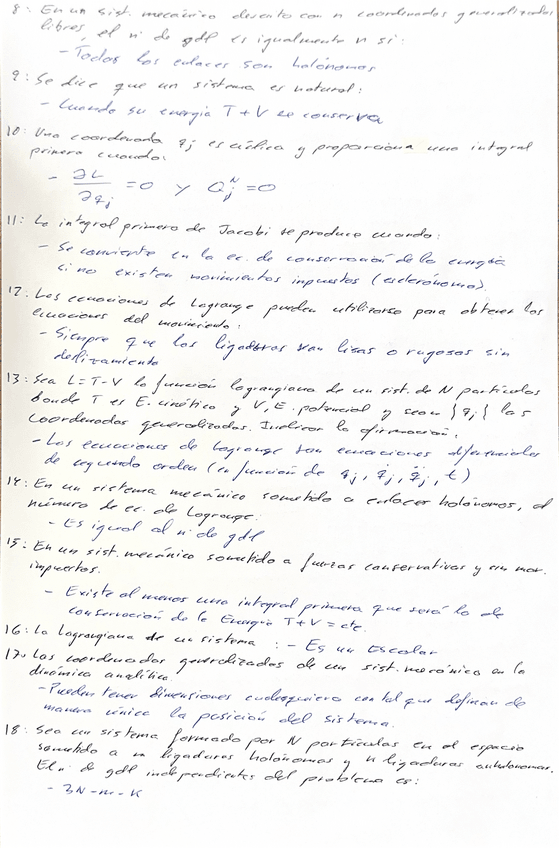 8: En un sist. mecánico descrito con n coordenadas generalizadas
libres, el nº de gdl es igualmente n si:
- Todos los enlaces son holónomos
9: Se dice que un sistema es natural:
- Cuando su energía T+V se conserva
10: Una coordenada qj es cíclica y proporciona una integral
primera cuando:
- ∂L/∂qj = 0 y Qj^N = 0
11: La integral primera de Jacobi se produce cuando:
- Se convierte en la ec. de conservación de la energía
si no existen movimientos impuestos (esclerónomo).
12: Las ecuaciones de Lagrange pueden utilizarse para obtener las
ecuaciones del movimiento:
- Siempre que las ligaduras sean lisas o rugosas sin
deslizamiento
13: Sea L=T-V la función lagrangiana de un sist. de N partículas
donde T es E. cinética y V, E. potencial y sean {qj} las
coordenadas generalizadas. Indicar la afirmación.
- Las ecuaciones de Lagrange son ecuaciones diferenciales
de segundo orden (en función de qj, q̇j, q̈j, t)
14: En un sistema mecánico sometido a enlaces holónomos, el
número de ec. de Lagrange:
- Es igual al nº de gdl
15: En un sist. mecánico sometido a fuerzas conservativas y sin mov.
impuestos.
- Existe al menos una integral primera que será la de
conservación de la Energía T+V = cte.
16: La Lagrangiana de un sistema: - Es un Escalar
17: Las coordenadas generalizadas de un sist. mecánico en la
dinámica analítica.
- Pueden tener dimensiones cualesquiera con tal que definan de
manera única la posición del sistema.
18: Sea un sistema formado por N partículas en el espacio
sometido a m ligaduras holónomas y n ligaduras anholónomas.
El nº de gdl independientes del problema es:
- 3N-m-K